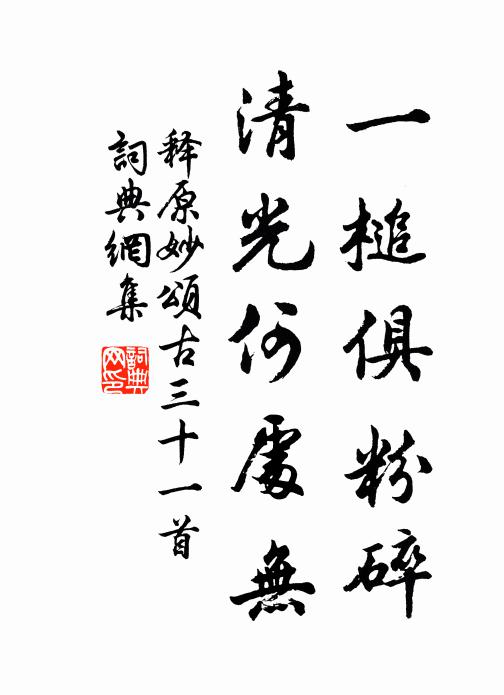 一槌俱粉碎
清光何處無
释原妙頌古三十一首
詞典網集
詞典網印